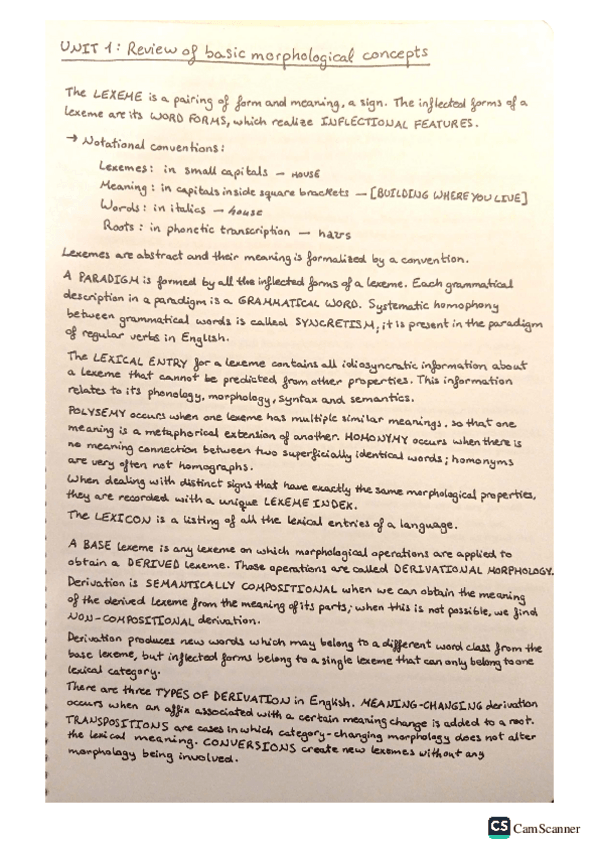 UNIT 1: Review of basic morphological concepts
The LEXEME is a pairing of form and meaning, a sign. The inflected forms of a
lexeme are its WORD FORMS, which realize INFLECTIONAL FEATURES.
→ Notational conventions:
Lexemes: in small capitals — HOUSE
Meaning: in capitals inside square brackets — [BUILDING WHERE YOU LIVE]
Words: in italics — house
Roots: in phonetic transcription — haʊs
Lexemes are abstract and their meaning is formalized by a convention.
A PARADIGM is formed by all the inflected forms of a lexeme. Each grammatical
description in a paradigm is a GRAMMATICAL WORD. Systematic homophony
between grammatical words is called SYNCRETISM, it is present in the paradigm
of regular verbs in English.
The LEXICAL ENTRY for a lexeme contains all idiosyncratic information about
a lexeme that cannot be predicted from other properties. This information
relates to its phonology, morphology, syntax and semantics.
POLYSEMY occurs when one lexeme has multiple similar meanings, so that one
meaning is a metaphorical extension of another. HOMONYMY occurs when there is
no meaning connection between two superficially identical words; homonyms
are very often not homographs.
When dealing with distinct signs that have exactly the same morphological properties,
they are recorded with a unique LEXEME INDEX.
The LEXICON is a listing of all the lexical entries of a language.
A BASE lexeme is any lexeme on which morphological operations are applied to
obtain a DERIVED lexeme. Those operations are called DERIVATIONAL MORPHOLOGY.
Derivation is SEMANTICALLY COMPOSITIONAL when we can obtain the meaning
of the derived lexeme from the meaning of its parts; when this is not possible, we find
NON-COMPOSITIONAL derivation.
Derivation produces new words which may belong to a different word class from the
base lexeme, but inflected forms belong to a single lexeme that can only belong to one
lexical category.
There are three TYPES OF DERIVATION in English. MEANING-CHANGING derivation
occurs when an affix associated with a certain meaning change is added to a root.
TRANSPOSITIONS are cases in which category-changing morphology does not alter
the lexical meaning. CONVERSIONS create new lexemes without any
morphology being involved.
CS CamScanner